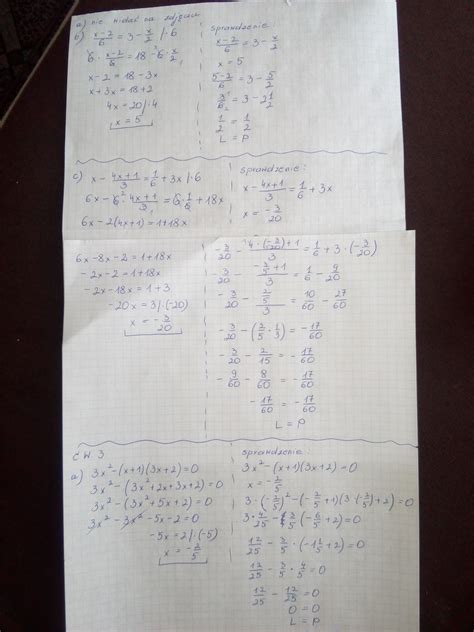 a) nie widać na zdjęciu
b) x-2/6 = 3 - x/2 |·6
6 · x-2/6 = 18 - 6 · x/2
x - 2 = 18 - 3x
x + 3x = 18 + 2
4x = 20 |:4
x = 5
sprawdzenie:
x-2/6 = 3 - x/2
x = 5
5-2/6 = 3 - 5/2
3/6 = 3 - 2 1/2
1/2 = 1/2
L = P
c) x - 4x+1/3 = 1/6 + 3x |·6
6x - 6 · 4x+1/3 = 6 · 1/6 + 18x
6x - 2(4x+1) = 1 + 18x
6x - 8x - 2 = 1 + 18x
-2x - 2 = 1 + 18x
-2x - 18x = 1 + 3
-20x = 3 |:(-20)
x = -3/20
sprawdzenie:
x - 4x+1/3 = 1/6 + 3x
x = -3/20
-3/20 - 4·(-3/20)+1/3 = 1/6 + 3·(-3/20)
-3/20 - -3/5+1/3 = 1/6 - 9/20
-3/20 - 2/5/3 = 10/60 - 27/60
-3/20 - (2/5 · 1/3) = -17/60
-3/20 - 2/15 = -17/60
-9/60 - 8/60 = -17/60
-17/60 = -17/60
L = P
ĆW 3
a) 3x² - (x+1)(3x+2) = 0
3x² - (3x²+2x+3x+2) = 0
3x² - (3x²+5x+2) = 0
3x² - 3x² - 5x - 2 = 0
-5x = 2 |:(-5)
x = -2/5
sprawdzenie:
3x² - (x+1)(3x+2) = 0
x = -2/5
3·(-2/5)² - (-2/5+1)(3·(-2/5)+2) = 0
3 · 4/25 - 3/5(-6/5+2) = 0
12/25 - 3/5 · (-1 1/5+2) = 0
12/25 - 3/5 · 4/5 = 0
12/25 - 12/25 = 0
0 = 0
L = P